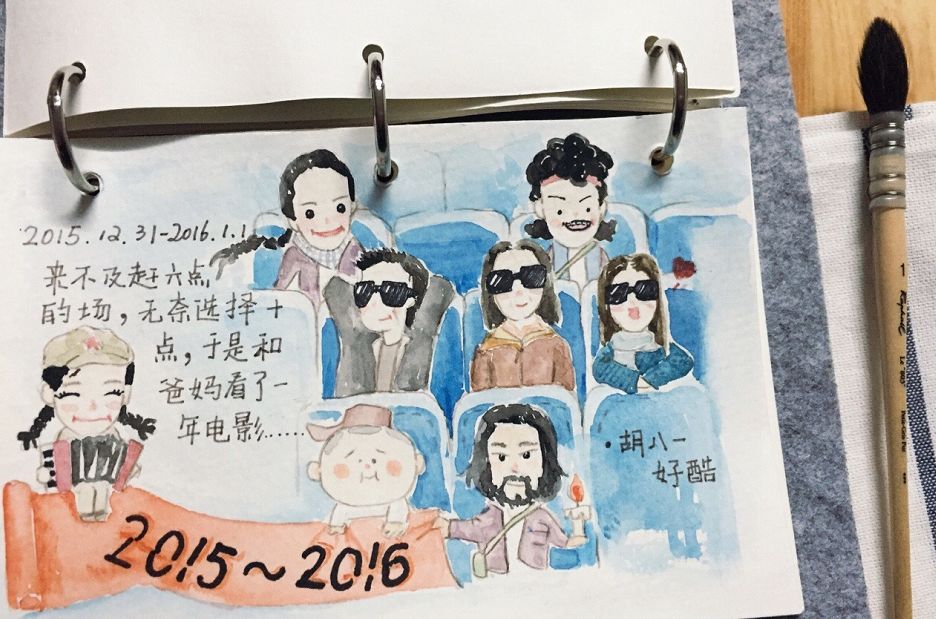 2015.12.31-2016.1.1
来不及赶六点
的场，无奈选择十
点，于是和
爸妈看了一
年电影……
·胡八一
好酷
2015~2016
1